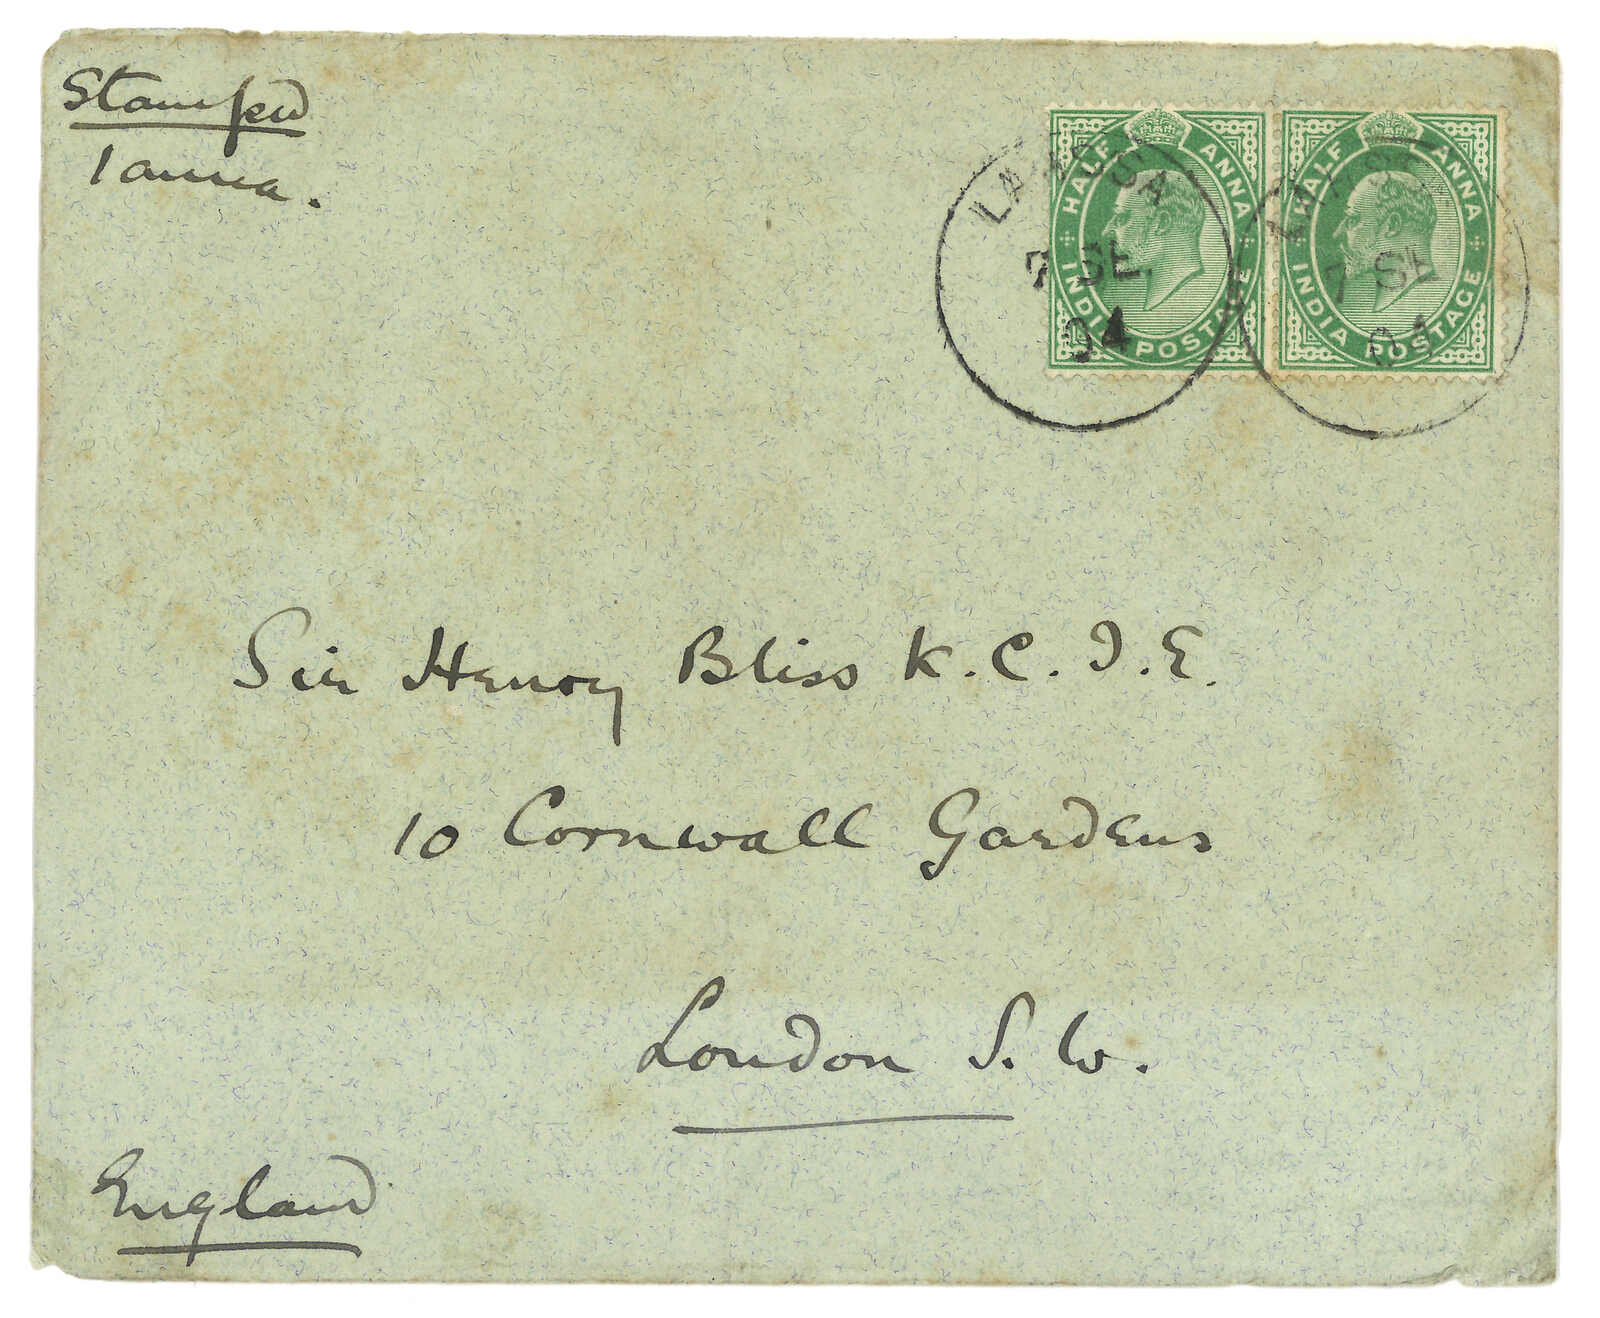 Stamped
1 anna.
HALF ANNA
INDIA POSTAGE
HALF ANNA
INDIA POSTAGE
7 SE.
04
7 SE
04
Sir Henry Bliss K.C.I.E.
10 Cornwall Gardens
London S.W.
England